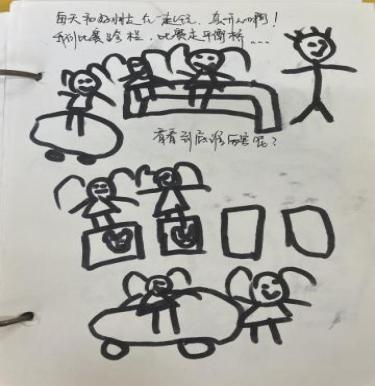 每天和好朋友在一起玩,真开心啊!
我们比赛跨栏,比赛走平衡桥...
看看到底谁厉害呢?